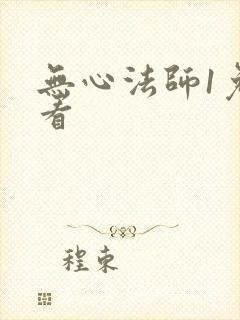 無心法師1免
看
程東